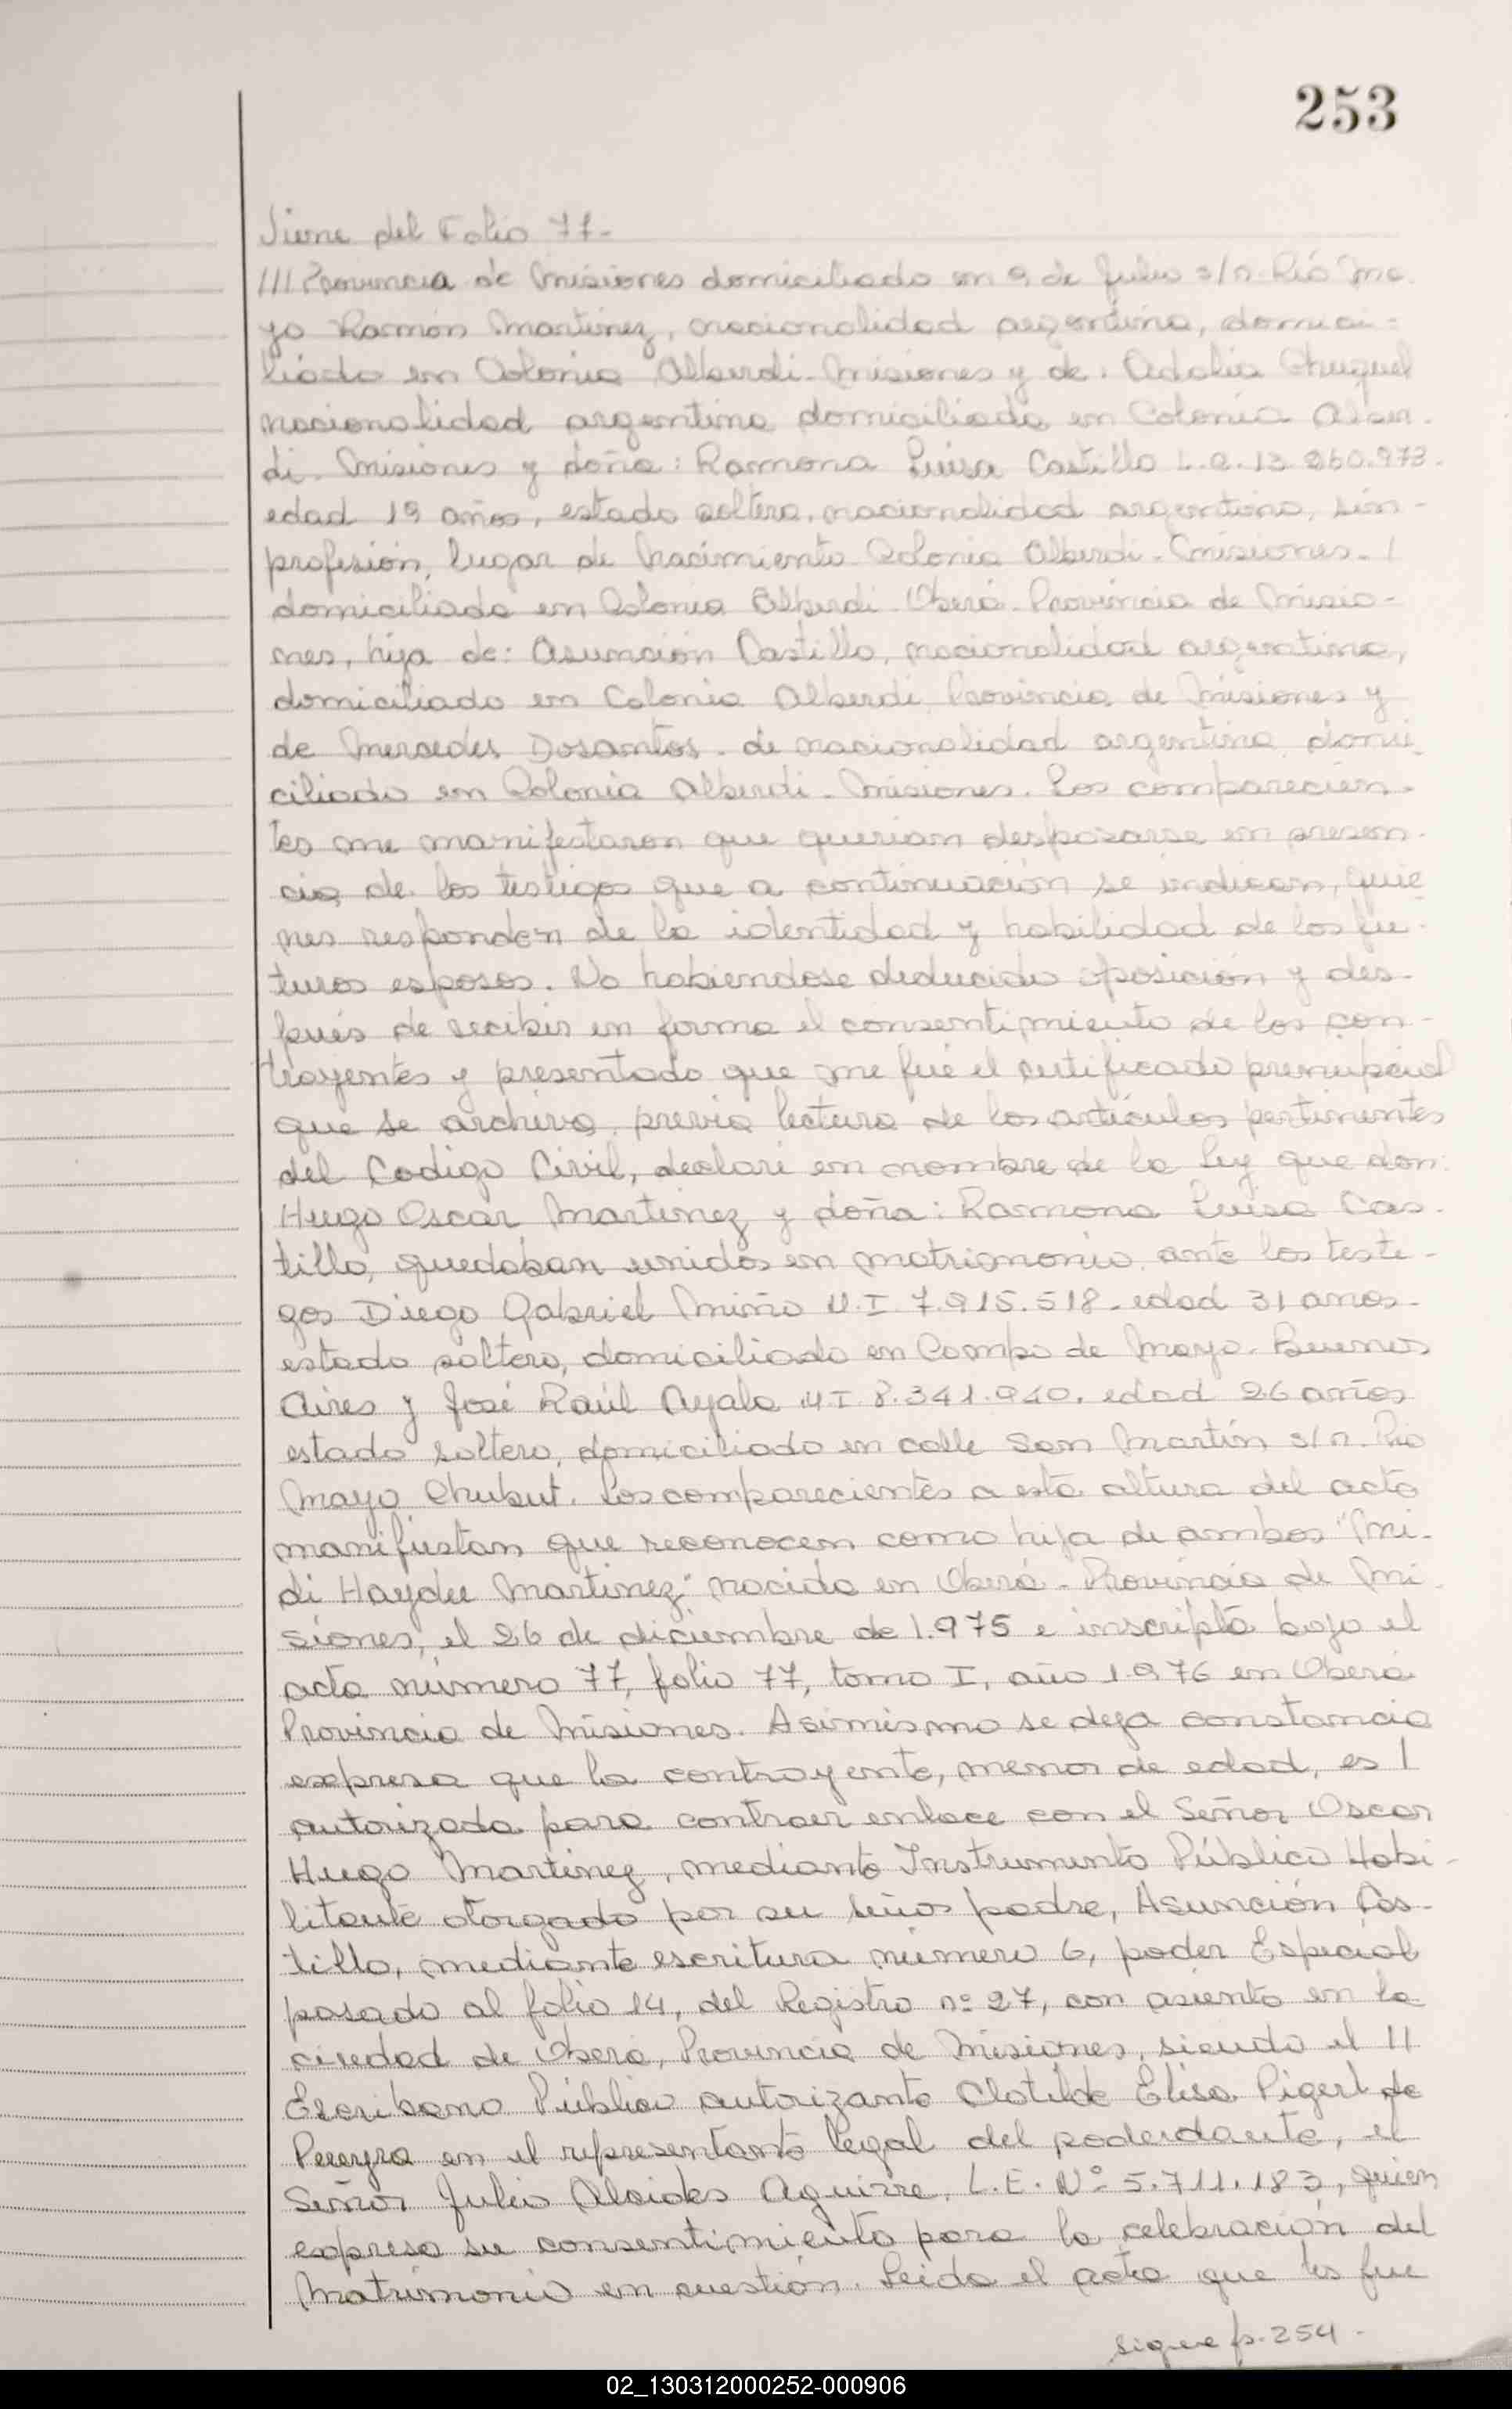 253
Viene del Folio 77-
/// Provincia de Misiones domiciliado en 9 de Julio s/n. Río Ma-
yo Ramón Martinez, nacionalidad argentina, domici-
liado en Colonia Alberdi-Misiones y de: Adolia
nacionalidad argentina domiciliada en Colonia Alber-
di. Misiones y doña: Ramona Luisa Castillo L.C. 13.260.973-
edad 19 años, estado soltera, nacionalidad argentina, sin-
profesión, lugar de Nacimiento Colonia Alberdi-Misiones-/
domiciliada en Colonia Alberdi-Oberá-Provincia de Misio-
nes, hija de: Asunción Castillo, nacionalidad argentina,
domiciliado en Colonia Alberdi Provincia de Misiones y
de Mercedes Dosantos. de nacionalidad argentina domi-
ciliado en Colonia Alberdi-Misiones. Los comparecien-
tes me manifestaron que querian desposarse en presen-
cia de los testigos que a continuación se indican, quie
nes responden de la identidad y habilidad de los fu-
turos esposos. No habiendose deducido oposición y des-
pués de recibir en forma el consentimiento de los con-
trayentes y presentado que me fué el certificado prenupcial
que se archiva, previa lectura de los artículos pertinentes
del Codigo Civil, declaré en nombre de la Ley que don:
Hugo Oscar Martinez y doña: Ramona Luisa Cas-
tillo, quedaban unidos en matrimonio ante los testi-
gos Diego Gabriel Miño M.I. 7.915.518-edad 31 años-
estado soltero, domiciliado en Campo de Mayo-Buenos
Aires y José Raúl Ayala M.I. 8.341.940, edad 26 años
estado soltero, domiciliado en calle San Martín s/n. Río
Mayo Chubut. Los comparecientes a esta altura del acto
manifiestan que reconocen como hija de ambos "Mi-
di Haydee Martinez" nacida en Oberá-Provincia de Mi-
siones, el 26 de diciembre de 1.975 e inscripta bajo el
acta número 77, folio 77, tomo I, año 1.976 en Oberá
Provincia de Misiones. Asimismo se deja constancia
expresa que la contrayente, menor de edad, es /
autorizada para contraer enlace con el Señor Oscar
Hugo Martinez, mediante Instrumento Público Habi-
litante otorgado por su señor padre, Asunción Cas-
tillo, mediante escritura número 6, poder Especial
pasado al folio 14, del Registro nº 27, con asiento en la
ciudad de Oberá, Provincia de Misiones, siendo el //
Escribano Público autorizante Clotilde Elisa Pigerl de
Pereyra en el representante legal del poderdante, el
Señor Julio Alcides Aguirre, L.E. Nº 5.711.183, quien
expresa su consentimiento para la celebración del
Matrimonio en cuestión. Leida el acta que les fue
sigue p. 254-
02_130312000252-000906